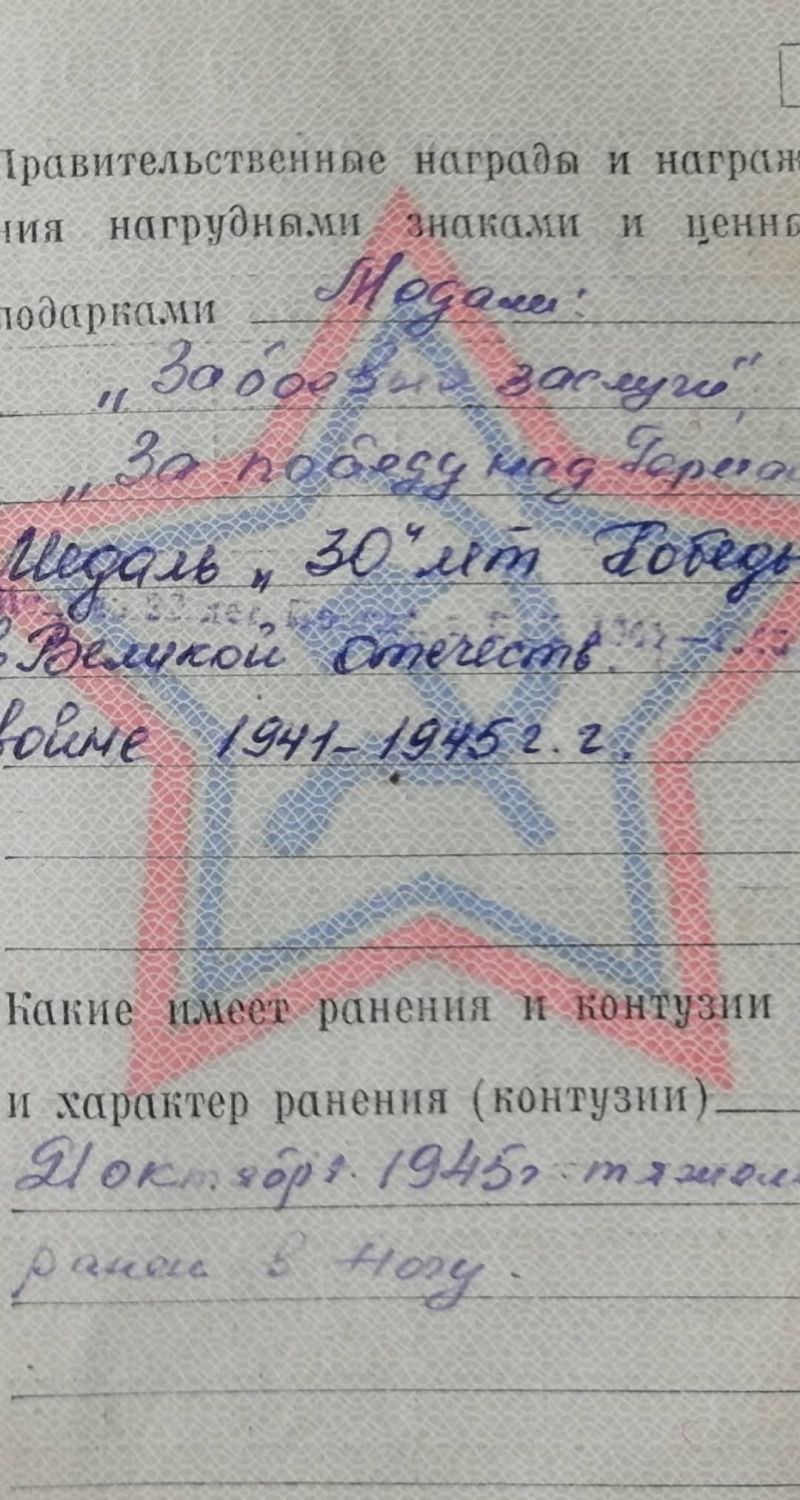 Правительственные награды и награж
ния нагрудными знаками и ценны
подарками Медали:
„За боевые заслуги"
„За победу над Герма
Медаль „30" лет Победы
в Великой отечеств.
войне 1941-1945 г.г.
Какие имеет ранения и контузии
и характер ранения (контузии)
21 октября 1945г тяжел
ранен в ногу.